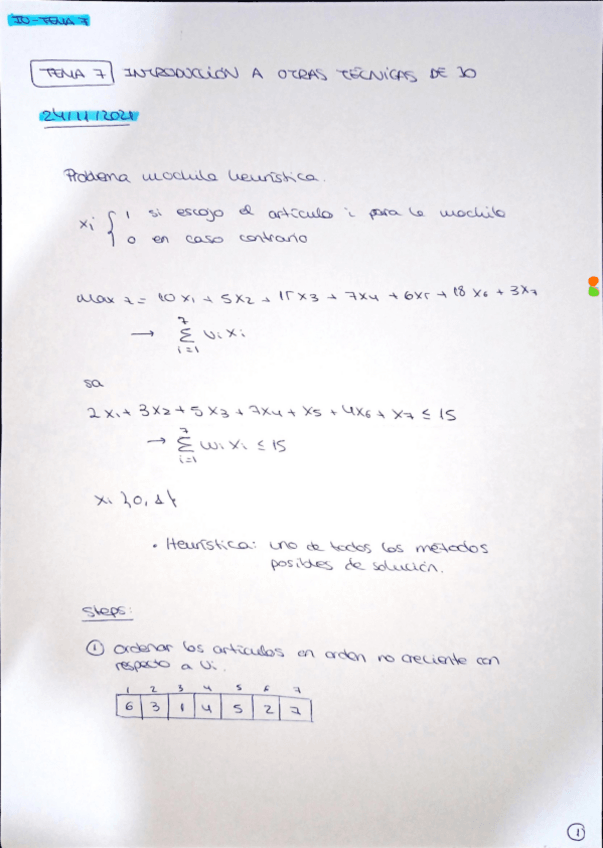 IO-TEMA 7
TEMA 7 INTRODUCCIÓN A OTRAS TÉCNICAS DE IO
24/11/2021
Problema mochila heurística.
xi { 1 si escojo el artículo i para la mochila
0 en caso contrario
Max z = 10x1 + 5x2 + 15x3 + 7x4 + 6x5 + 18x6 + 3x7
→ 7 Σ i=1 vi xi
sa
2x1 + 3x2 + 5x3 + 7x4 + x5 + 4x6 + x7 ≤ 15
→ 7 Σ i=1 wi xi ≤ 15
xi }0,1{
• Heurística: uno de todos los métodos
posibles de solución.
Steps:
① Ordenar los artículos en orden no creciente con
respecto a vi.
1 2 3 4 5 6 7
6 3 1 4 5 2 7
1